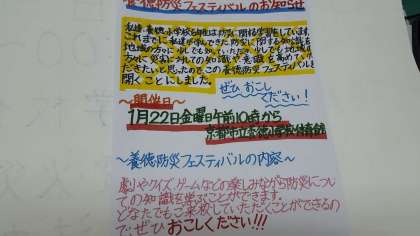 養徳防災フェスティバルのお知らせ
私達養徳小学校6年生は防災に関する学習をしています。
これまでに私達が学んできた防災に関する知識を
地域の方々に少しでも知っていただき、少しでも地域
災害に対しての知識や意識を高めて
だきたいと思ったので、この養徳防災フェスティバルを
開くことにしました。
ぜひおこし
ください！
〜開催日〜
1月22日金曜日午前10時から
京都市立養徳小学校体育館
〜養徳防災フェスティバルの内容〜
劇やクイズ、ゲームなどの楽しみながら防災につい
ての知識を学ぶことができます。
どなたでもご来校していただくことができるの
で、ぜひおこしください!!!